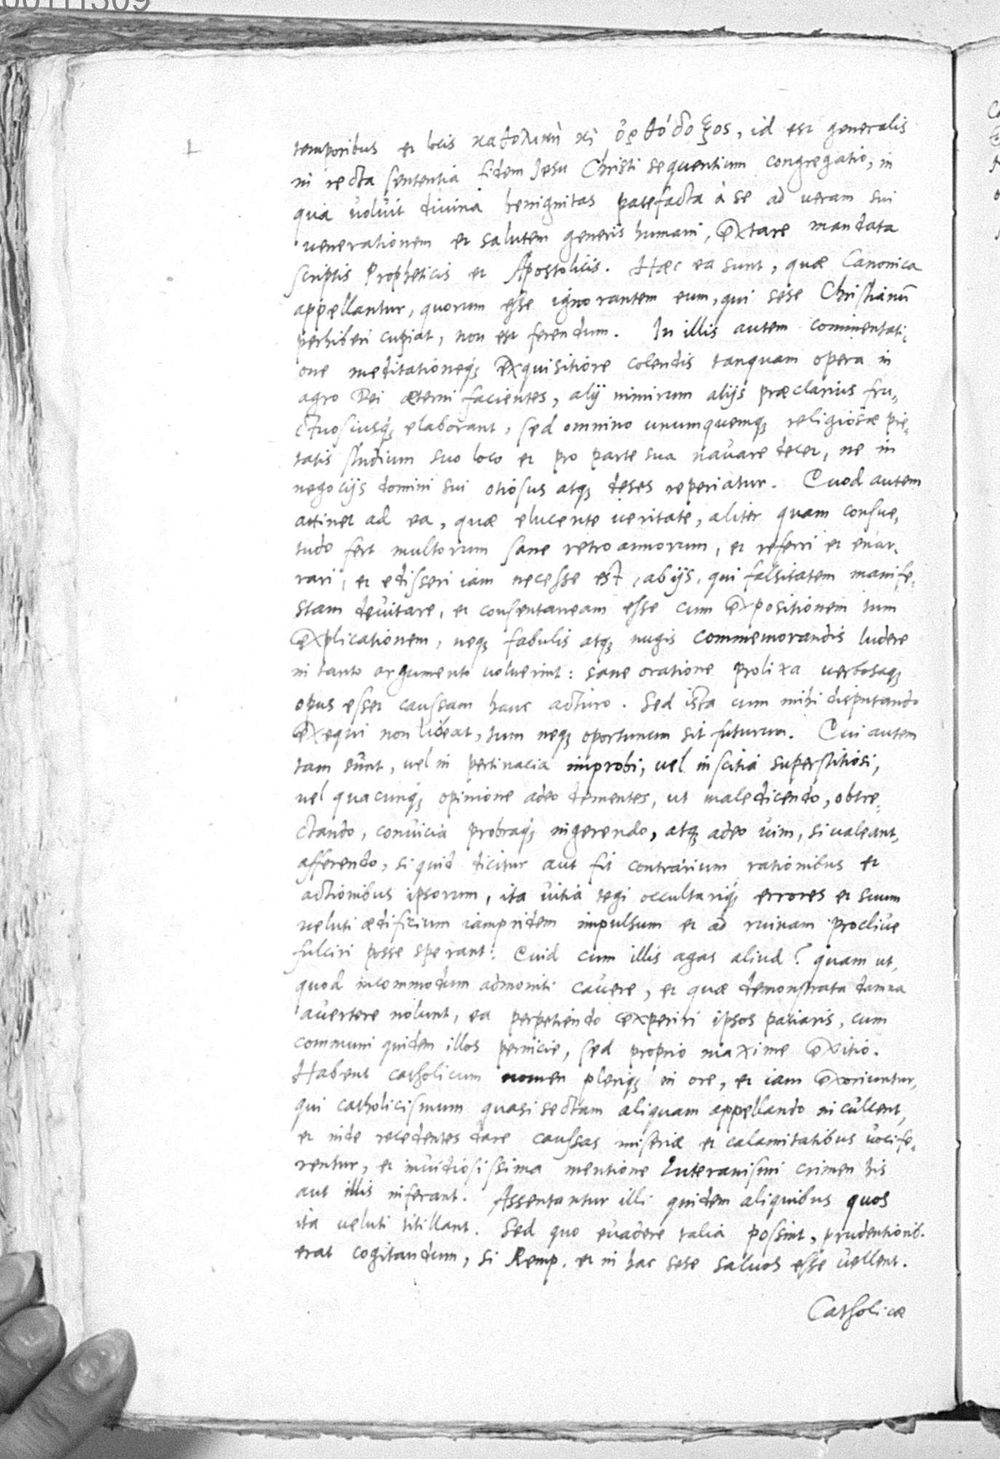 00111309
temporibus et locis καθολικὴ κὶ ὀρθόδοξος, id est generalis
in recta sententia fidem Jesu Christi sequentium congregatio, in
qua voluit divina benignitas patefacta à se ad veram sui
venerationem et salutem generis humani, extare mandata
scriptis Propheticis et Apostolicis. Hæc ea sunt, quæ Canonica
appellantur, quorum esse ignorantem eum, qui sese Christianũ
perhiberi cupiat, non est ferendum. In illis autem commentati,
one meditationeq; exquisitiore colendis tanquam opera in
agro Dei æterni facientes, alij nimirum alijs præclarius fru,
ctuosiusq; elaborant, sed omnino unumquemq; religiosæ pie,
tatis studium suo loco et pro parte sua navare decet, ne in
negocijs domini sui otiosus atq; deses reperiatur. Quod autem
attinet ad ea, quæ elucente veritate, aliter quam consue,
tudo fert multorum sane retro annorum, et referri et enar,
rari, et edisseri iam necesse est, ab ijs, qui falsitatem manife,
stam devitare, et consentaneam esse cum expositionem tum
explicationem, neq; fabulis atq; nugis commemorandis ludere
in tanto argumento voluerint: sane oratione prolixa verbosaq;
opus esset caussam hanc acturo. Sed ista cum mihi disputando
exequi non libeat, tum neq; oportunum sit futurum. Qui autem
tam sunt, vel in pertinacia improbi, vel inscitia superstitiosi,
vel quacunq; opinione adeo dementes, ut maledicendo, obtre,
ctando, convicia probraq; ingerendo, atq; adeo vim, si valeant,
afferendo, si quid dicitur aut fit contrarium rationibus et
actionibus ipsorum, ita vitia tegi occultariq; errores et suum
veluti ædificium iampridem impulsum et ad ruinam proclive
fulciri posse sperant: Quid cum illis agas aliud? quam ut,
quod incommodum admoniti cavere, et quæ demonstrata damna
avertere nolunt, ea perpetiendo experiri ipsos patiaris, cum
communi quidem illos pernicie, sed proprio maxime exitio.
Habent catholicum nomen pleriq; in ore, et iam exoriuntur,
qui catholicismum quasi sectam aliquam appellando inculcent,
et inde recedentes dare caussas miseriæ et calamitatibus vocife,
rentur, et invidiosissima mentione Luteranismi crimen his
aut illis inferant. Assentantur illi quidem aliquibus quos
ita veluti titillant. Sed quo evadere talia possint, prudentiorib.
erat cogitandum, si Remp. et in hac sese salvos esse vellent.
Catholicæ